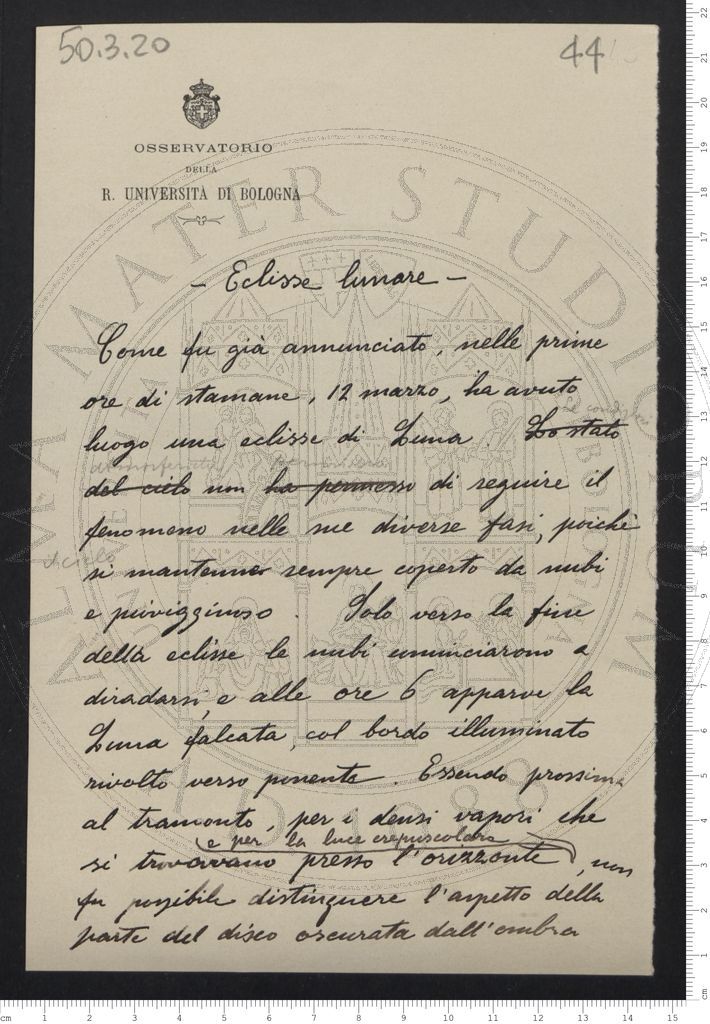 50.3.20
44
OSSERVATORIO
DELLA
R. UNIVERSITÀ DI BOLOGNA
- Eclisse lunare -
Come fu già annunciato, nelle prime
ore di stamane, 12 marzo, ha avuto
Le condizioni
luogo una eclisse di Luna. Lo stato
atmosferiche permisero
del cielo non ha permesso di seguire il
fenomeno nelle sue diverse fasi, poichè
il cielo
si mantenne sempre coperto da nubi
e pioviggi­noso. Solo verso la fine
della eclisse le nubi cominciarono a
diradarsi, e alle ore 6 apparve la
Luna falcata, col bordo illuminato
rivolto verso ponente. Essendo prossima
al tramonto, per i densi vapori che
e per la luce crepuscolare
si trovavano presso l'orizzonte, non
fu possibile distinguere l'aspetto della
parte del disco oscurata dall'ombra
ALMA MATER STUDIORUM
A.D. 1088